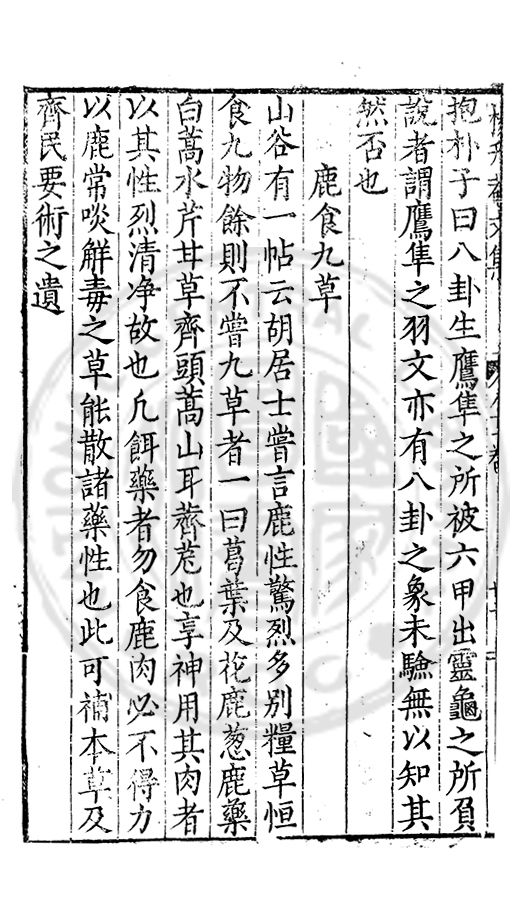 抱朴子曰八卦生鷹隼之所被六甲出靈龜之所負
說者謂鷹隼之羽文亦有八卦之象未驗無以知其
然否也
鹿食九草
山谷有一帖云胡居士嘗言鹿性驚烈多別糧草恒
食九物餘則不嘗九草者一曰葛葉及花鹿葱鹿藥
白蒿水芹甘草齊頭蒿山耳薺苨也享神用其肉者
以其性烈清净故也凢餌藥者勿食鹿肉必不得力
以鹿常啖解毒之草能散諸藥性也此可補本草及
齊民要術之遺